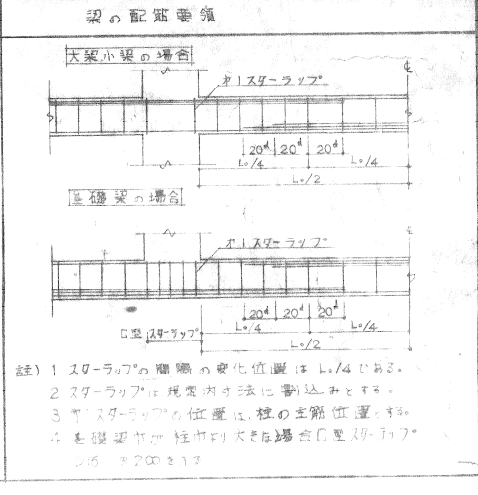 梁の配筋要領
大梁小梁の場合
オ1スターラップ
20d 20d 20d
Lo/4 Lo/4
Lo/2
基礎梁の場合
オ1スターラップ
20d 20d 20d
Lo/4 Lo/4
匚型スターラップ
Lo/2
註) 1 スターラップの間隔の変化位置はLo/4である。
2 スターラップは規定内寸法に割込みとする。
3 オ1スターラップの位置は、柱の主筋位置とする。
4 基礎梁巾が柱巾より大きな場合匚型スターラップ
@200とする